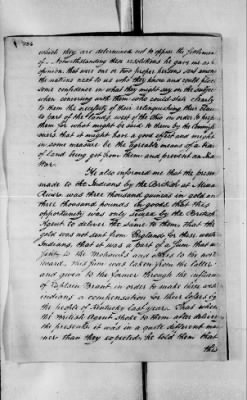 which they are determined not to oppose the gentlemen
of . Notwithstanding their resolutions he gave us as his
opinion, that were one or two proper persons sent among
the nations next to us who they know and could place
some confidence in what they might say on the subject
when conversing with them who could state clearly
to them the necessity of their relinquishing their Claim
to part of the Lands west of the Ohio in order to prepare
them for what might be said to them by the Commis-
sioners that it might have a good effect and might
in some measure be the agreeable means of a tract
of land being got from them and prevent an Indian
War.
He also informed me that the present
made to the Indians by the British at Miami
was three thousand guineas in gold and
three thousand pounds in goods that this
opportunity was only seized by the British
Agent to deliver the same to them that the
gold was not sent from England for these western
Indians, that it was a part of a sum that was
sent to the Mohawks and others to the north
ward. This sum was taken from the latter
and given to the former through the influence
of Captain Brant in order to make these
indians a compensation for their losses by
the people of Kentucky last year. That when
the British Agent spoke to them after delivering
the presents it was in a quite different man-
ner than they expected, he told them that
this